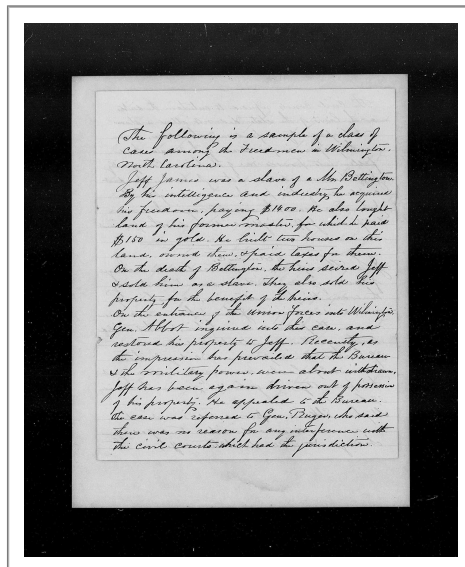 The following is a sample of a class of
cases among the Freedmen in Wilmington,
North Carolina.
Jeff James was a slave of a Mr. Bettington.
By his intelligence and industry, he acquired
his freedom, paying $1800. He also bought
land of his former master, for which he paid
$150 in gold. He built two houses on this
land, owned them, & paid taxes for them.
On the death of Bettington, the heirs seized Jeff
& sold him as a slave. They also sold his
property for the benefit of the heirs.
On the entrance of the Union forces into Wilmington,
Gen. Abbot inquired into his case, and
restored his property to Jeff. Recently, as
the impression has prevailed that the Bureau
& the military power were about withdrawn,
Jeff has been again driven out of possession
of his property. He appealed to the Bureau.
The case was referred to Gen. Ruger, who said
there was no reason for any interference with
the civil courts which had the jurisdiction.